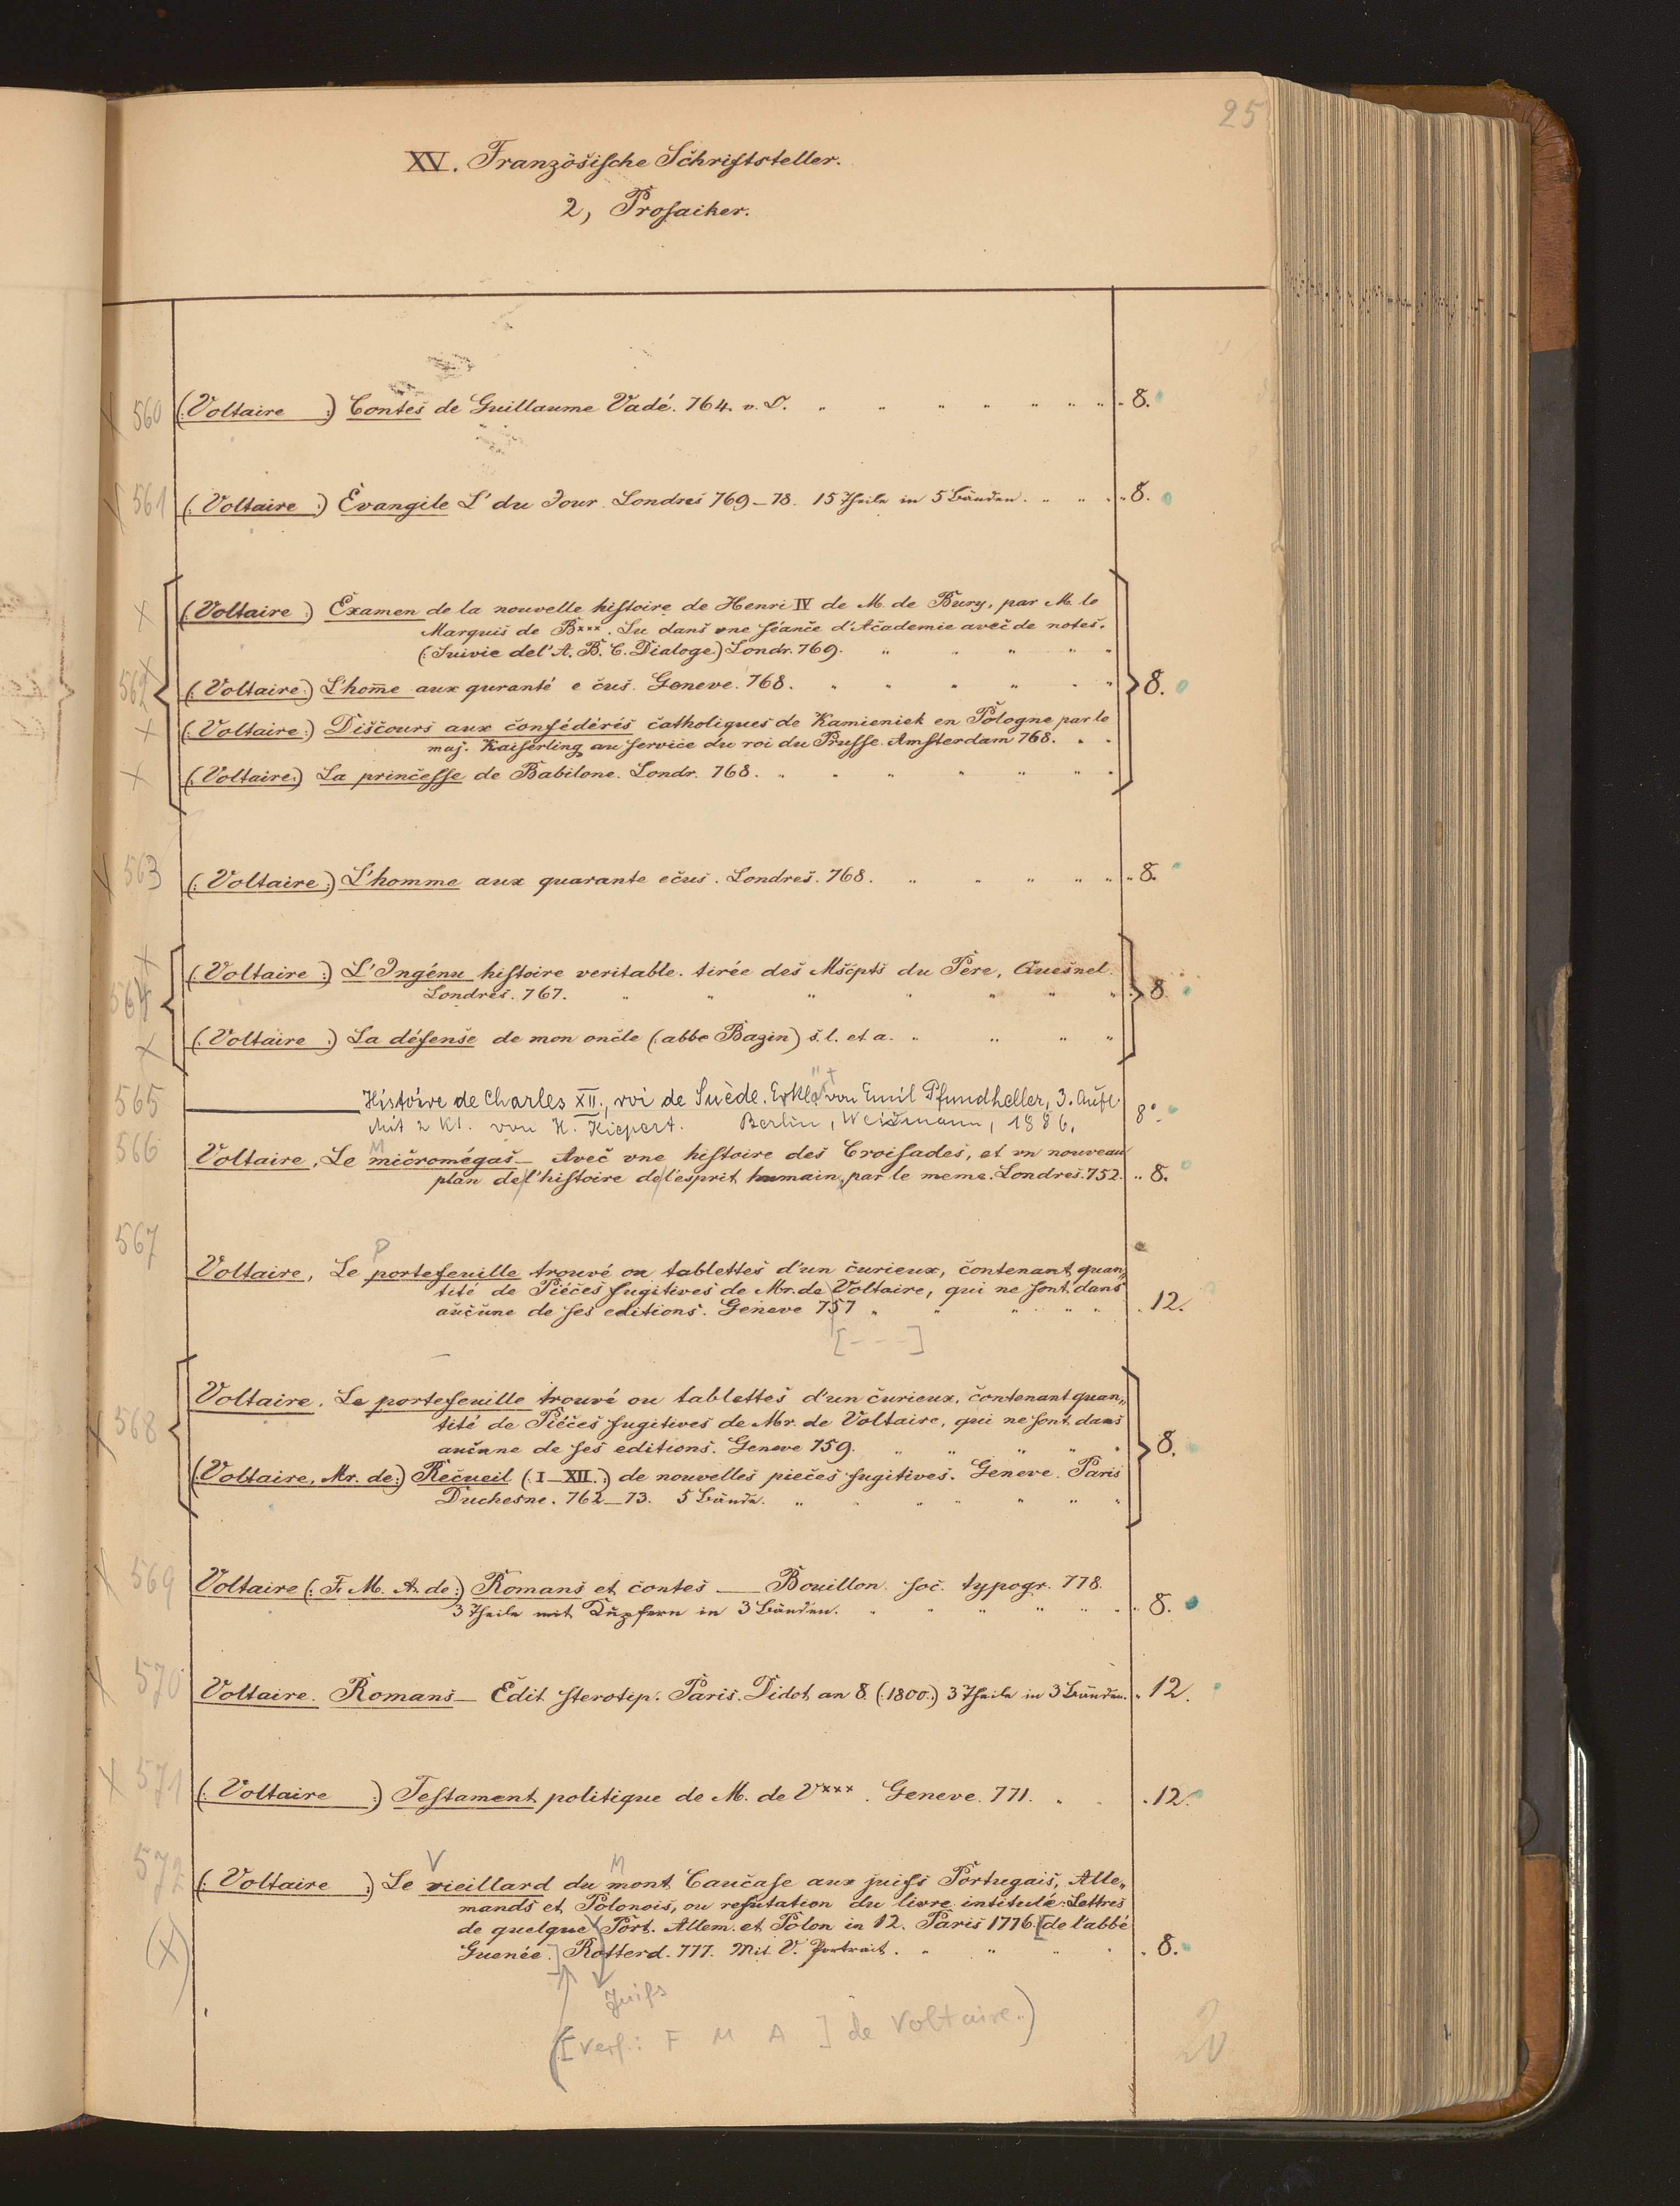 25
XV. Französische Schriftsteller.
2, Prosaiker.
560 (: Voltaire :) Contes de Guillaume Vadé. 764. v. O. 8.
561 (: Voltaire :) Évangile L' du Jour. Londres 769–78. 15 Theile in 5 Bänden. 8.
(: Voltaire :) Examen de la nouvelle histoire de Henri IV de M. de Bury, par M. le
Marquis de B***. Lu dans une séance d'Academie avec de notes.
(: Suivie del' A. B. C. Dialoge.) Londr. 769.
562 (: Voltaire :) L'home aux quranté e cus. Geneve. 768. 8.
(: Voltaire :) Discours aux confédérés catholiques de Kamieniek en Pologne par le
maj. Kaiserling au service du roi du Prusse. Amsterdam 768.
(: Voltaire :) La princesse de Babilone. Londr. 768.
563 (: Voltaire :) L'homme aux quarante ecus. Londres. 768. 8.
(: Voltaire :) L'Ingénu histoire veritable. tirée des Mscpts du Pere, Quesnel.
564 Londres. 767. 8.
(: Voltaire :) La défense de mon oncle (: abbe Bazin) s. l. et a.
565 Histoire de Charles XII., roi de Suède. Erkl. von Emil Pfundheller, 3. Aufl.
Mit 2 Kt. von H. Kiepert. Berlin, Weidmann, 1886. 8°.
566 Voltaire, Le micromégas – Avec une histoire des Croisades, et un nouveau
plan de l'histoire de l'esprit humain, par le meme. Londres. 752. 8.
567
P
Voltaire, Le portefeuille trouvé ou tablettes d'un curieux, contenant quan„
tité de Piéces fugitives de Mr. de Voltaire, qui ne sont dans
aucune de ses editions. Geneve 757 12.
[- - -]
Voltaire. Le portefeuille trouvé ou tablettes d'un curieux, contenant quan„
568 tité de Piéces fugitives de Mr. de Voltaire, qui ne sont dans
aucune de ses editions. Geneve 759. 8.
(: Voltaire, Mr. de :) Recueil (: I–XII. :) de nouvelles pieces fugitives. Geneve. Paris
Duchesne. 762–73. 5 Bände.
569 Voltaire (: F. M. A. de :) Romans et contes — Bouillon. soc. typogr. 778.
3 Theile mit Kupfern in 3 Bänden. 8.
570 Voltaire. Romans – Edit. sterotip. Paris. Didot, an 8. (: 1800 :) 3 Theile in 3 Bänden. 12.
571 (: Voltaire :) Testament politique de M. de V***. Geneve. 771. 12.
572 V M
(: Voltaire :) Le vieillard du mont Caucase aux juifs Portugais, Alle„
mands et Polonois, ou refutation du livre intitulé: Lettres
de quelque Port. Allem. et Polon in 12. Paris 1776. [de l'abbé
Guenée.] Rotterd. 777. Mit V. Portrait. 8.
(X)
Juifs
([Verf.: F M A ] de Voltaire.)
20